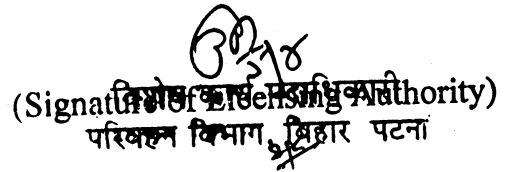 विशेष कार्य पदाधिकारी
(Signature of Licensing Authority)
परिवहन विभाग, बिहार पटना